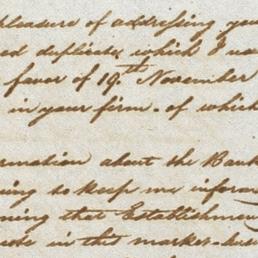 pleasure of addressing you
ed duplicate which I
favor of 19th November
in your firm - of which
rmation about the Bank
ing to keep me infor
ning that Establishmen
in this market